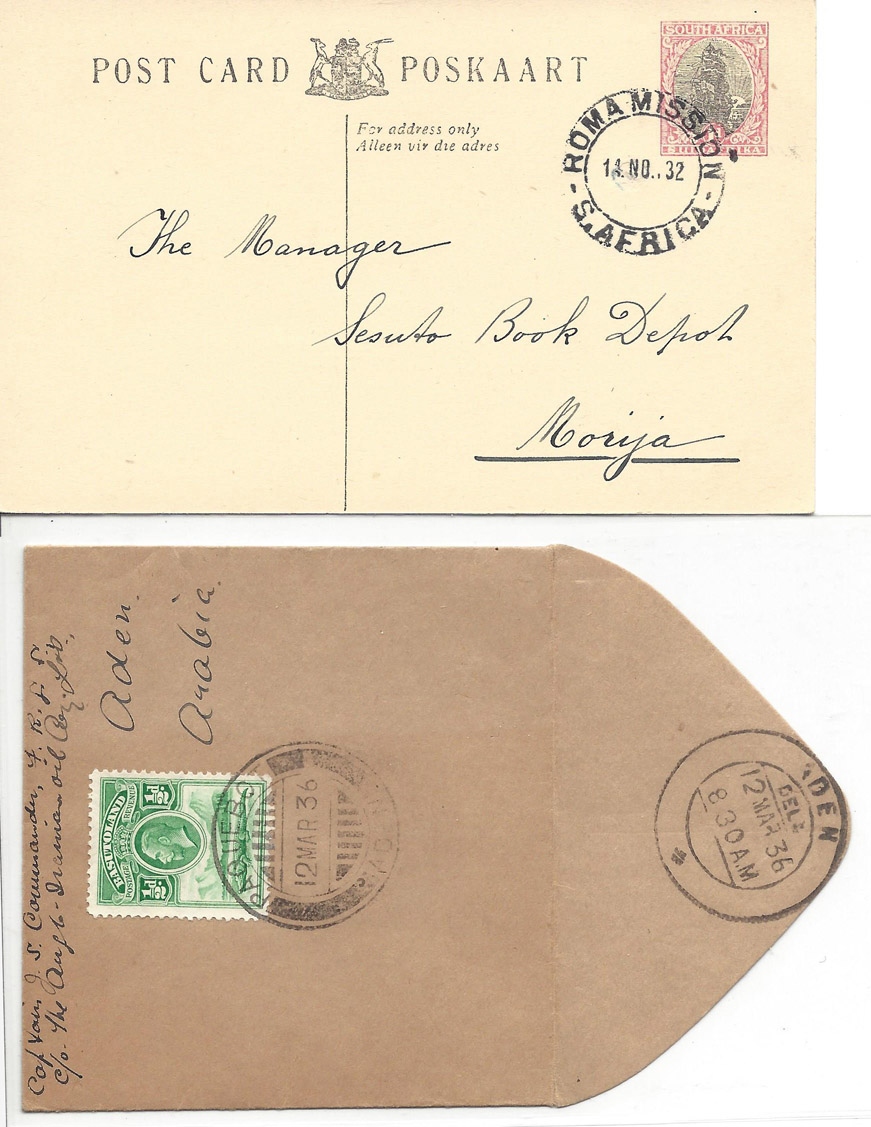 POST CARD POSKAART
For address only
Alleen vir die adres
SOUTH AFRICA
ROMA MISSION
14 NO.. 32
S. AFRICA
The Manager
Sesuto Book Depot
Morija
Captain J. S. Commander,
c/o. The Anglo-Iranian Oil
Aden.
Arabia.
BASUTOLAND
POSTAGE REVENUE
½D. ½D.
PAQUEBOT
12 MAR 36
ADEN
DEL.
12 MAR 36
8 30 A.M